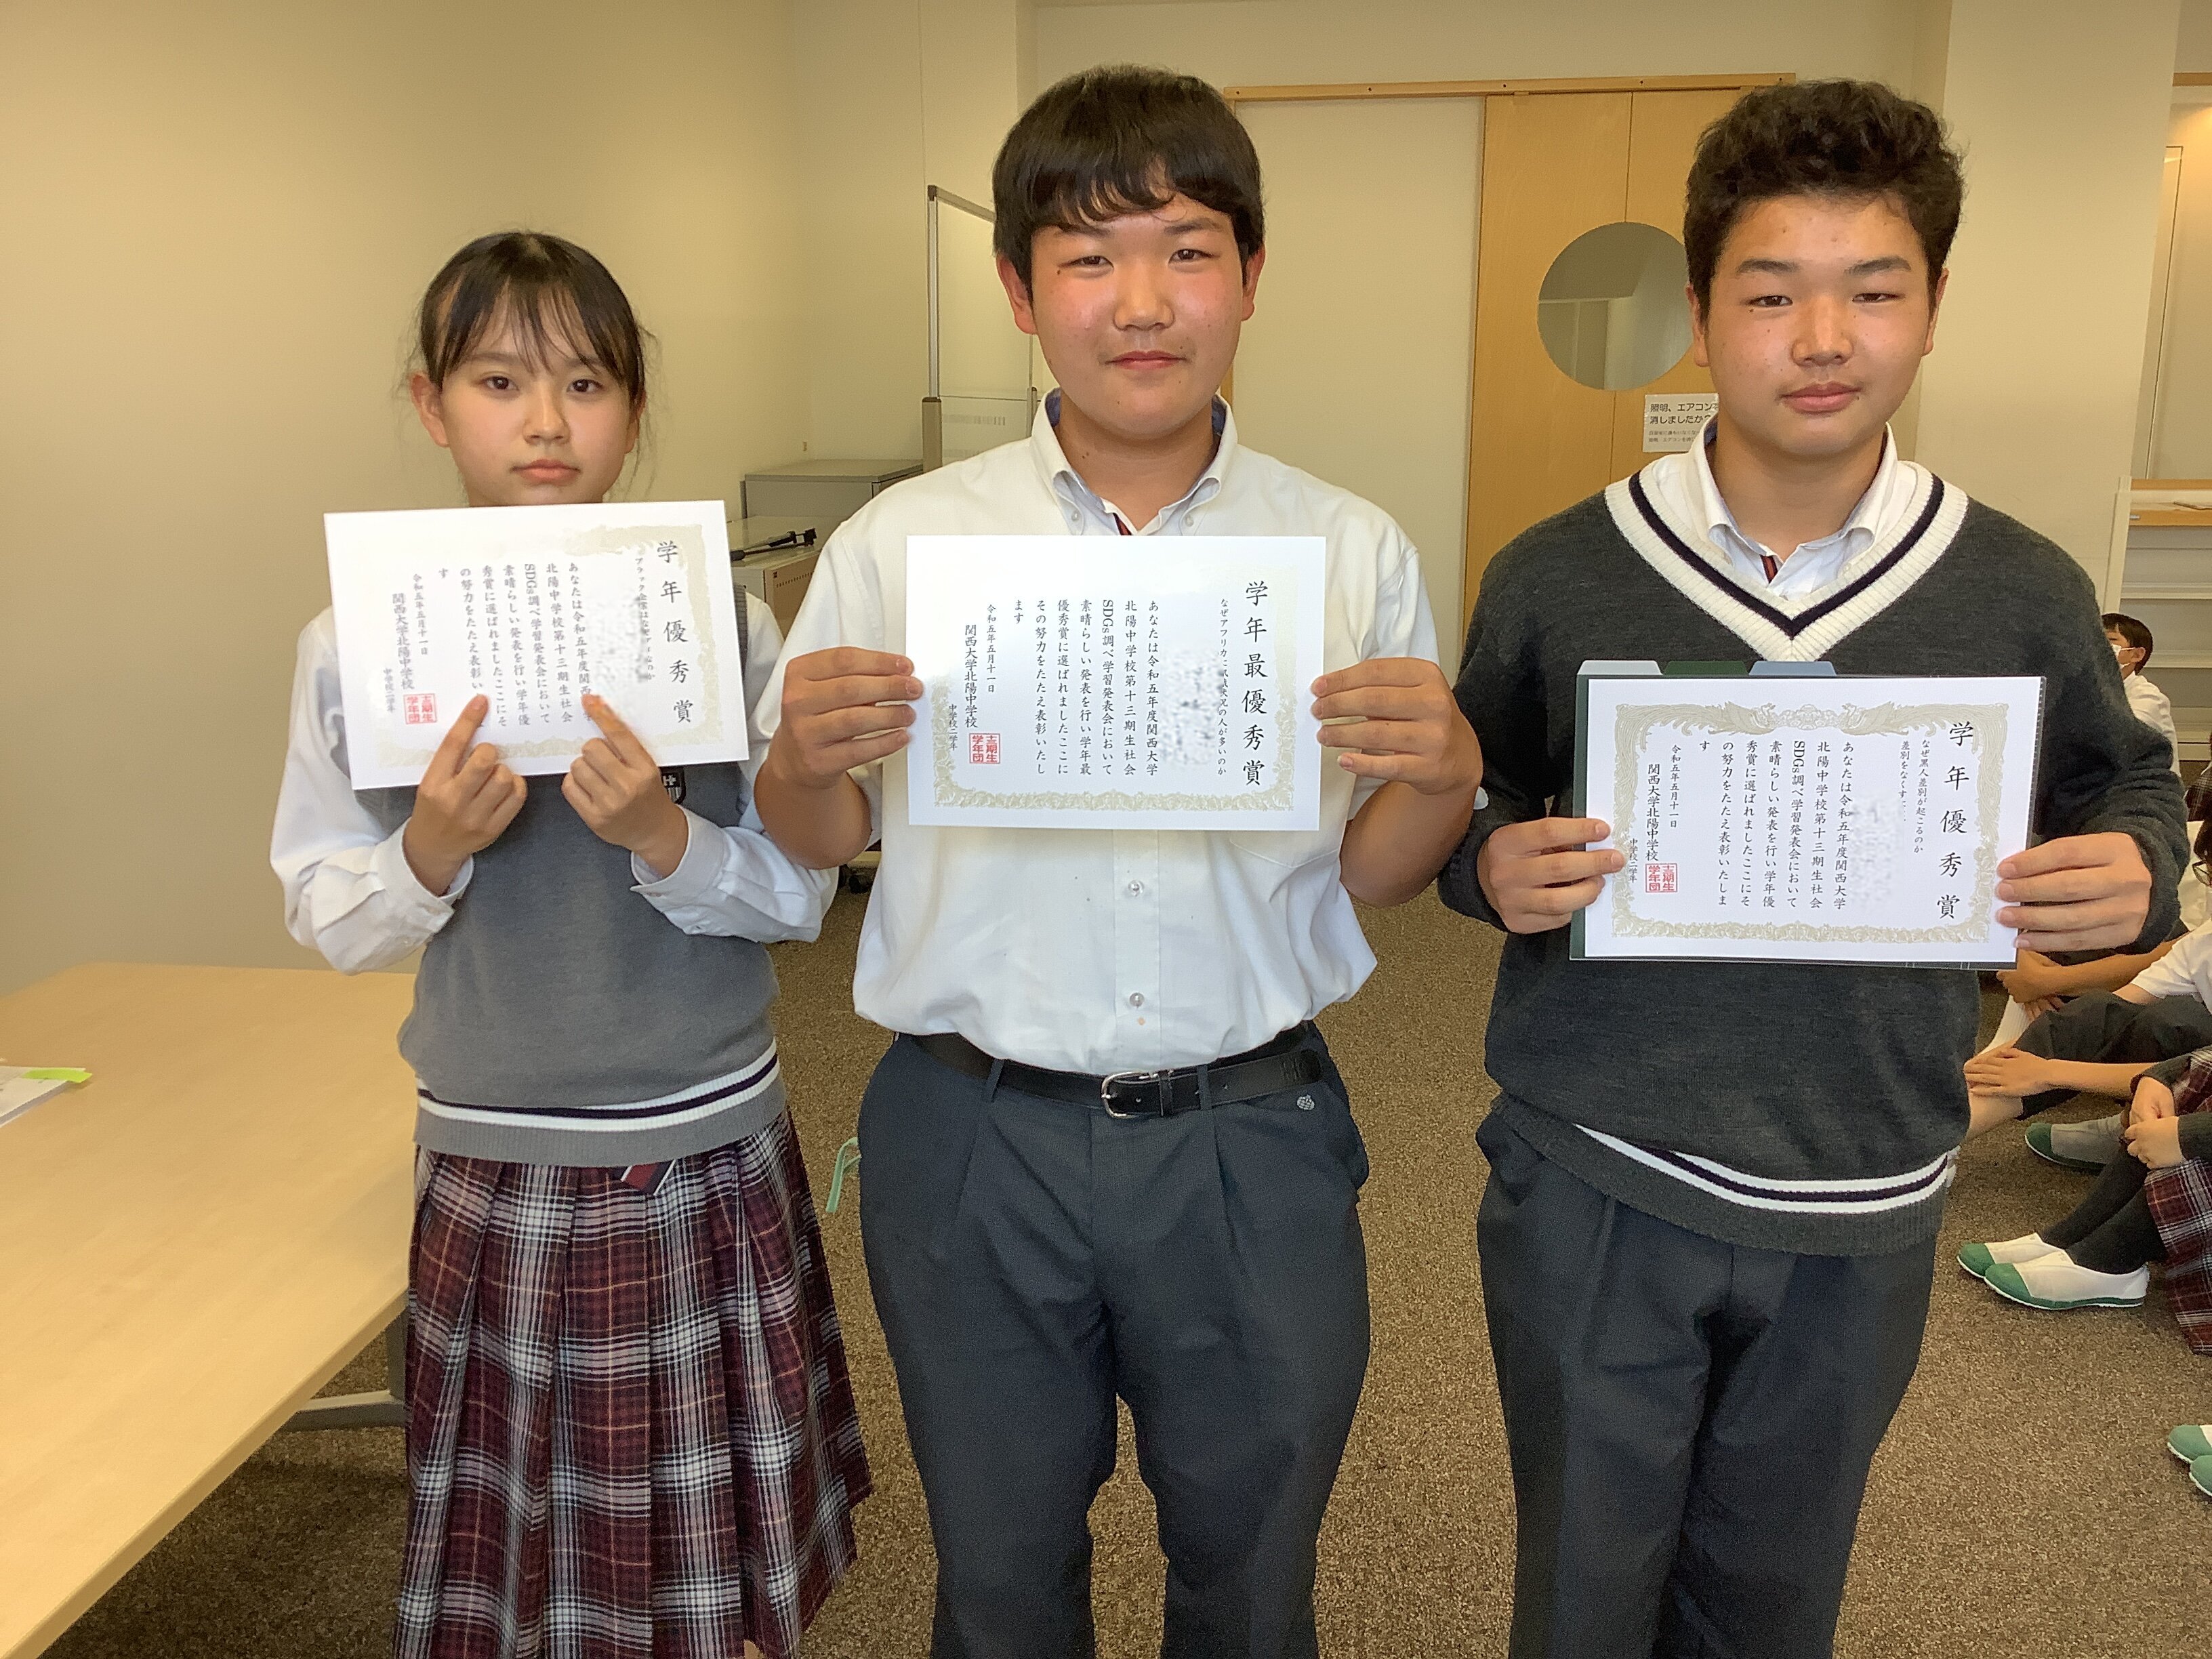 学年優秀賞
あなたは令和五年度関西
北陽中学校第十三期生社会
SDGs調べ学習発表会において
素晴らしい発表を行い学年優
秀賞に選ばれましたここにそ
の努力をたたえ表彰い
す
令和五年五月十一日
関西大学北陽中学校
中学校二学年
十三期生
学年団
学年最優秀賞
なぜアフリカに 状況の人が多いのか
あなたは令和五年度関西大学
北陽中学校第十三期生社会
SDGs調べ学習発表会において
素晴らしい発表を行い学年最
優秀賞に選ばれましたここに
その努力をたたえ表彰いたし
ます
令和五年五月十一日
関西大学北陽中学校
中学校二学年
十三期生
学年団
照明、エアコン
消しましたか?
学年優秀賞
なぜ黒人差別が起こるのか
差別をなくす
あなたは令和五年度関西大学
北陽中学校第十三期生社会
SDGs調べ学習発表会において
素晴らしい発表を行い学年優
秀賞に選ばれましたここにそ
の努力をたたえ表彰いたしま
す
令和五年五月十一日
関西大学北陽中学校
中学校二学年
十三期生
学年団